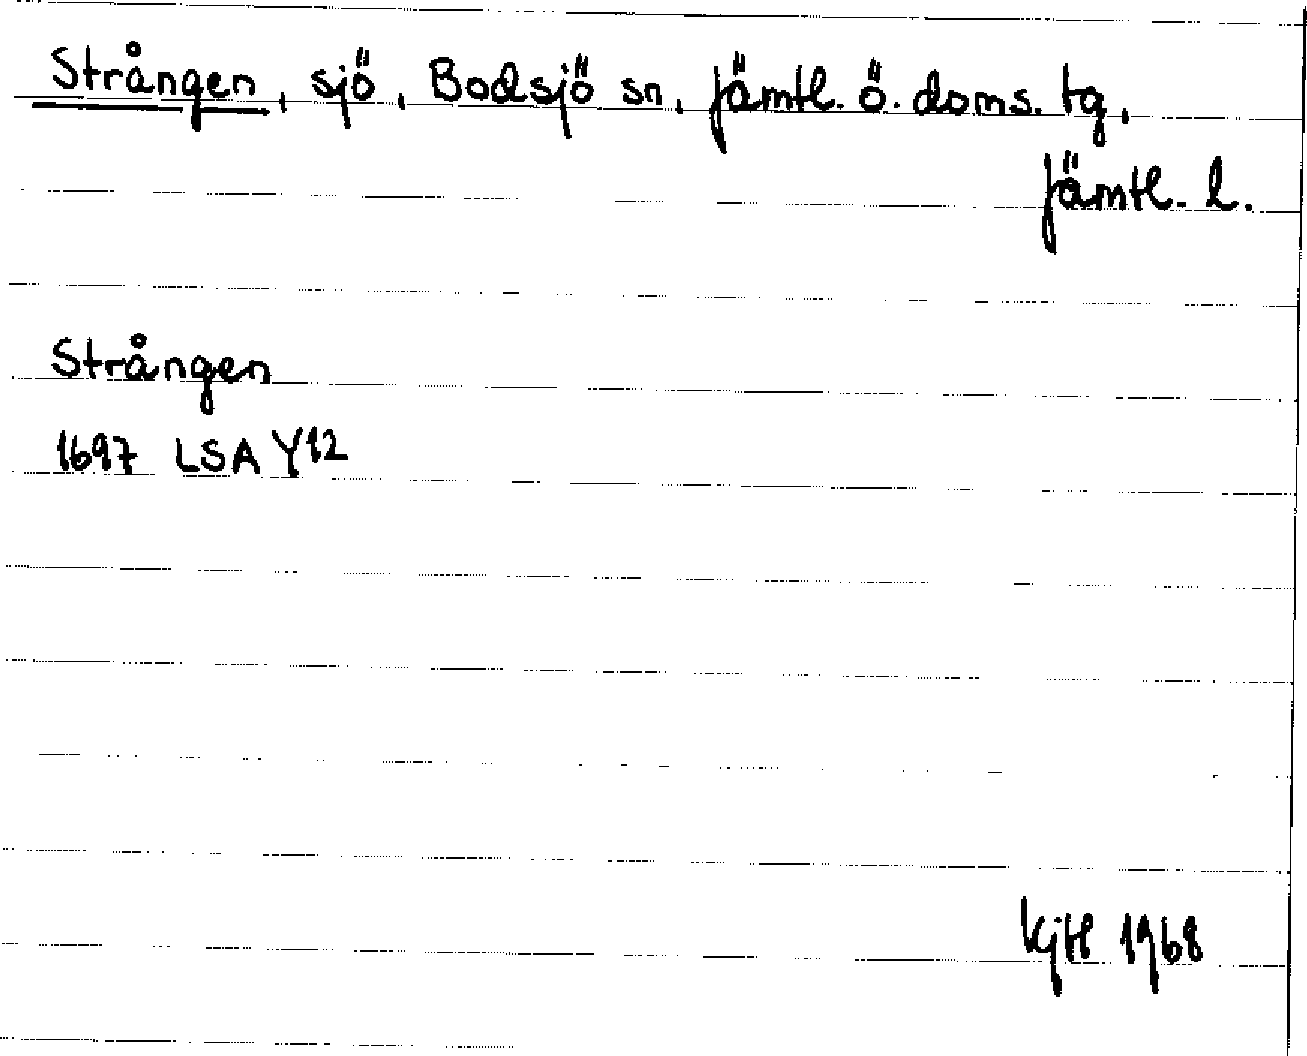 Strången, sjö, Bodsjö sn, Jämtl. ö. doms. tg,
Jämtl. l.
Strången
1697 LSA Y12
1968